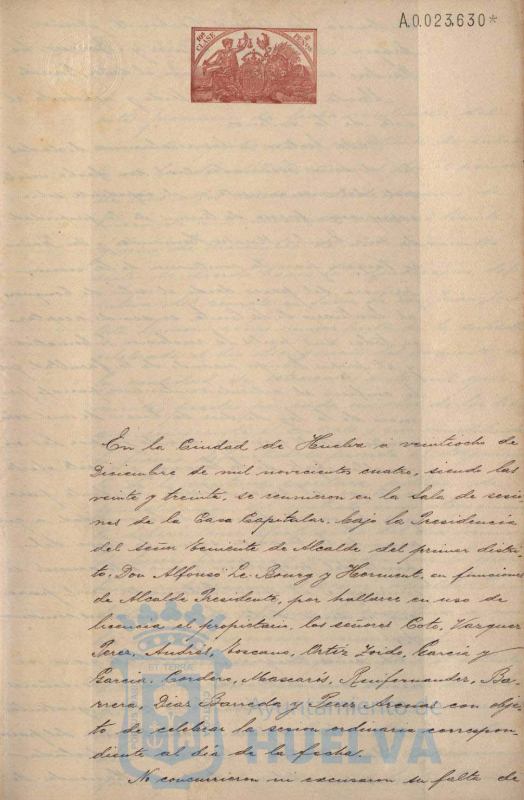 A.0.023.630*
10ª CLASE
2 PESETAS
En la Ciudad de Huelva á veintiocho de
Diciembre de mil novecientos cuatro, siendo las
veinte y treinta, se reunieron en la Sala de sesio
nes de la Casa Capitular, bajo la Presidencia
del señor Teniente de Alcalde del primer distri
to, Don Alfonso Le-Bourg y Horment, en funciones
de Alcalde Presidente, por hallarse en uso de
licencia el propietario, los señores Coto, Vazquez
Perez, Andrés, Toscano, Ortiz Zoido, Garcia y
Garcia, Cordero, Mascarós, Renfernander, Ba-
rrera, Diaz Barreda y Perez Brenes con obje-
to de celebrar la sesion ordinaria correspon-
diente al día de la fecha.
No concurrieron ni excusaron su falta de
Ayuntamiento de
HUELVA